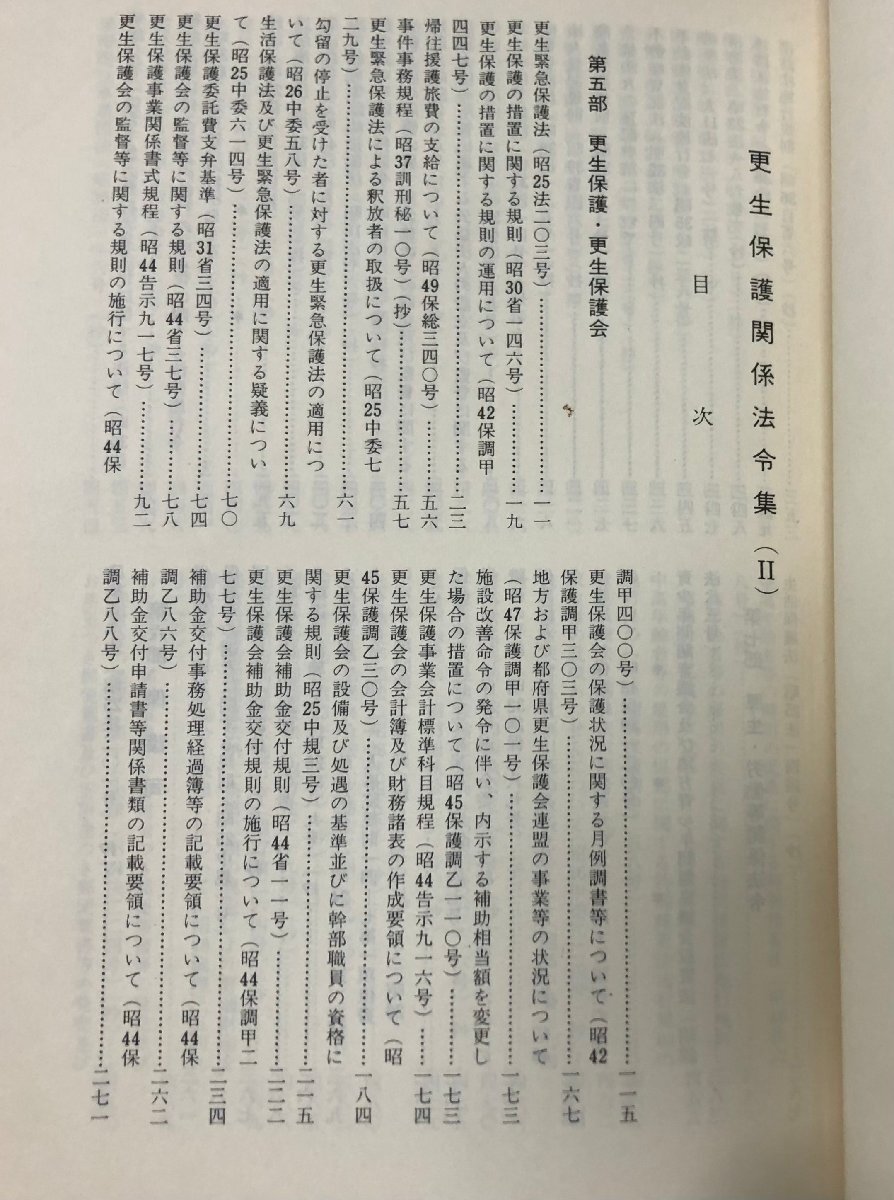 更生保護関係法令集(Ⅱ)
目次
第五部　更生保護・更生保護会
更生緊急保護法(昭25法二〇三号)……一一
更生保護の措置に関する規則(昭30省一四六号)……一九
更生保護の措置に関する規則の運用について(昭42保調甲
四四七号)……二三
帰往援護旅費の支給について(昭49保総三四〇号)……五六
事件事務規程(昭37訓刑秘一〇号)(抄)……五七
更生緊急保護法による釈放者の取扱について(昭25中委七
二九号)……六一
勾留の停止を受けた者に対する更生緊急保護法の適用につ
いて(昭26中委五八号)……六九
生活保護法及び更生緊急保護法の適用に関する疑義につい
て(昭25中委六一四号)……七〇
更生保護委託費支弁基準(昭31省三四号)……七四
更生保護会の監督等に関する規則(昭44省三七号)……七八
更生保護事業関係書式規程(昭44告示九一七号)……九二
更生保護会の監督等に関する規則の施行について(昭44保
調甲四〇〇号)……一一五
更生保護会の保護状況に関する月例調書等について(昭42
保護調甲三〇三号)……一六七
地方および都府県更生保護会連盟の事業等の状況について
(昭47保護調甲一〇一号)……一七三
施設改善命令の発令に伴い、内示する補助相当額を変更し
た場合の措置について(昭45保護調乙一一〇号)……一七三
更生保護事業会計標準科目規程(昭44告示九一六号)……一七四
更生保護会の会計簿及び財務諸表の作成要領について(昭
45保護調乙三〇号)……一八四
更生保護会の設備及び処遇の基準並びに幹部職員の資格に
関する規則(昭25中規三号)……二一五
更生保護会補助金交付規則(昭44省一一号)……二二二
更生保護会補助金交付規則の施行について(昭44保調甲二
七七号)……二三四
補助金交付事務処理経過簿等の記載要領について(昭44保
調乙八六号)……二六二
補助金交付申請書等関係書類の記載要領について(昭44保
調乙八八号)……二七一